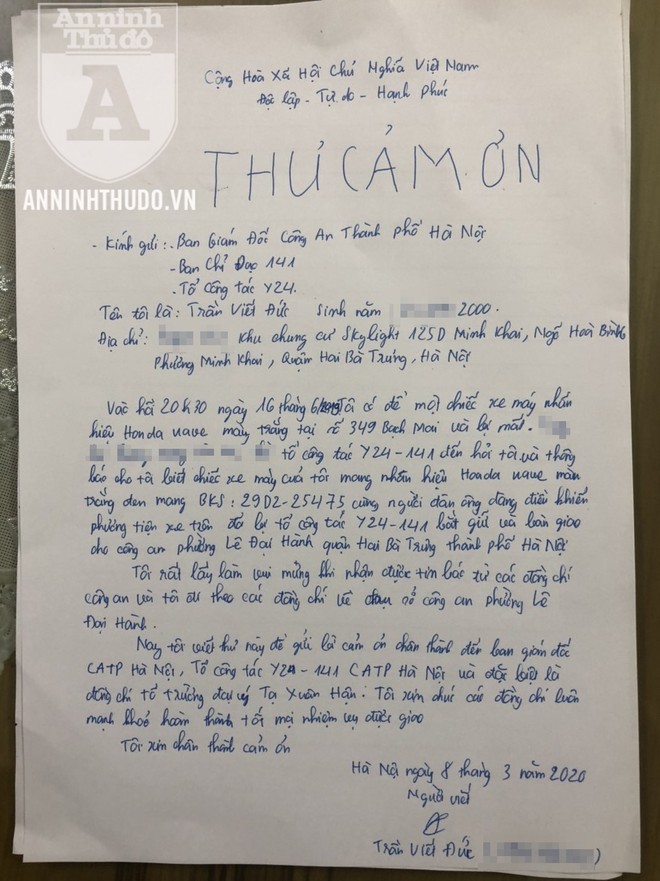 An ninh
Thủ đô
A
ANNINHTHUDO.VN
Cộng Hoà Xã Hội Chủ Nghĩa Việt Nam
Độc lập - Tự do - Hạnh Phúc
THƯ CẢM ƠN
- Kính gửi: - Ban Giám Đốc Công An Thành phố Hà Nội
- Ban Chỉ Đạo 141
- Tổ Công tác Y24.
Tên tôi là: Trần Viết Đức sinh năm 2000.
Địa chỉ: khu chung cư Skylight 125D Minh Khai, Ngõ Hoà Bình 6
Phường Minh Khai, Quận Hai Bà Trưng, Hà Nội
Vào hồi 20h30 ngày 16 tháng 6/2019 Tôi có để một chiếc xe máy nhãn
hiệu Honda wave màu trắng tại số 349 Bạch Mai và bị mất.
tổ công tác Y24-141 đến hỏi tôi và thông
báo cho tôi biết chiếc xe máy của tôi mang nhãn hiệu Honda wave màu
trắng đen mang BKS: 29D2-25475 cùng người đàn ông đang điều khiển
phương tiện xe trên đã bị tổ công tác Y24-141 bắt giữ và bàn giao
cho công an phường Lê Đại Hành quận Hai Bà Trưng thành phố Hà Nội
Tôi rất lấy làm vui mừng khi nhận được tin báo từ các đồng chí
công an và tôi đi theo các đồng chí về trụ sở công an phường Lê
Đại Hành.
Nay tôi viết thư này để gửi lời cảm ơn chân thành đến ban giám đốc
CATP Hà Nội, Tổ công tác Y24-141 CATP Hà Nội và đặc biệt là
đồng chí tổ trưởng đại uý Tạ Xuân Hận. Tôi xin chúc các đồng chí luôn
mạnh khoẻ hoàn thành tốt mọi nhiệm vụ được giao
Tôi xin chân thành cảm ơn
Hà Nội ngày 8 tháng 3 năm 2020
Người viết
Trần Viết Đức